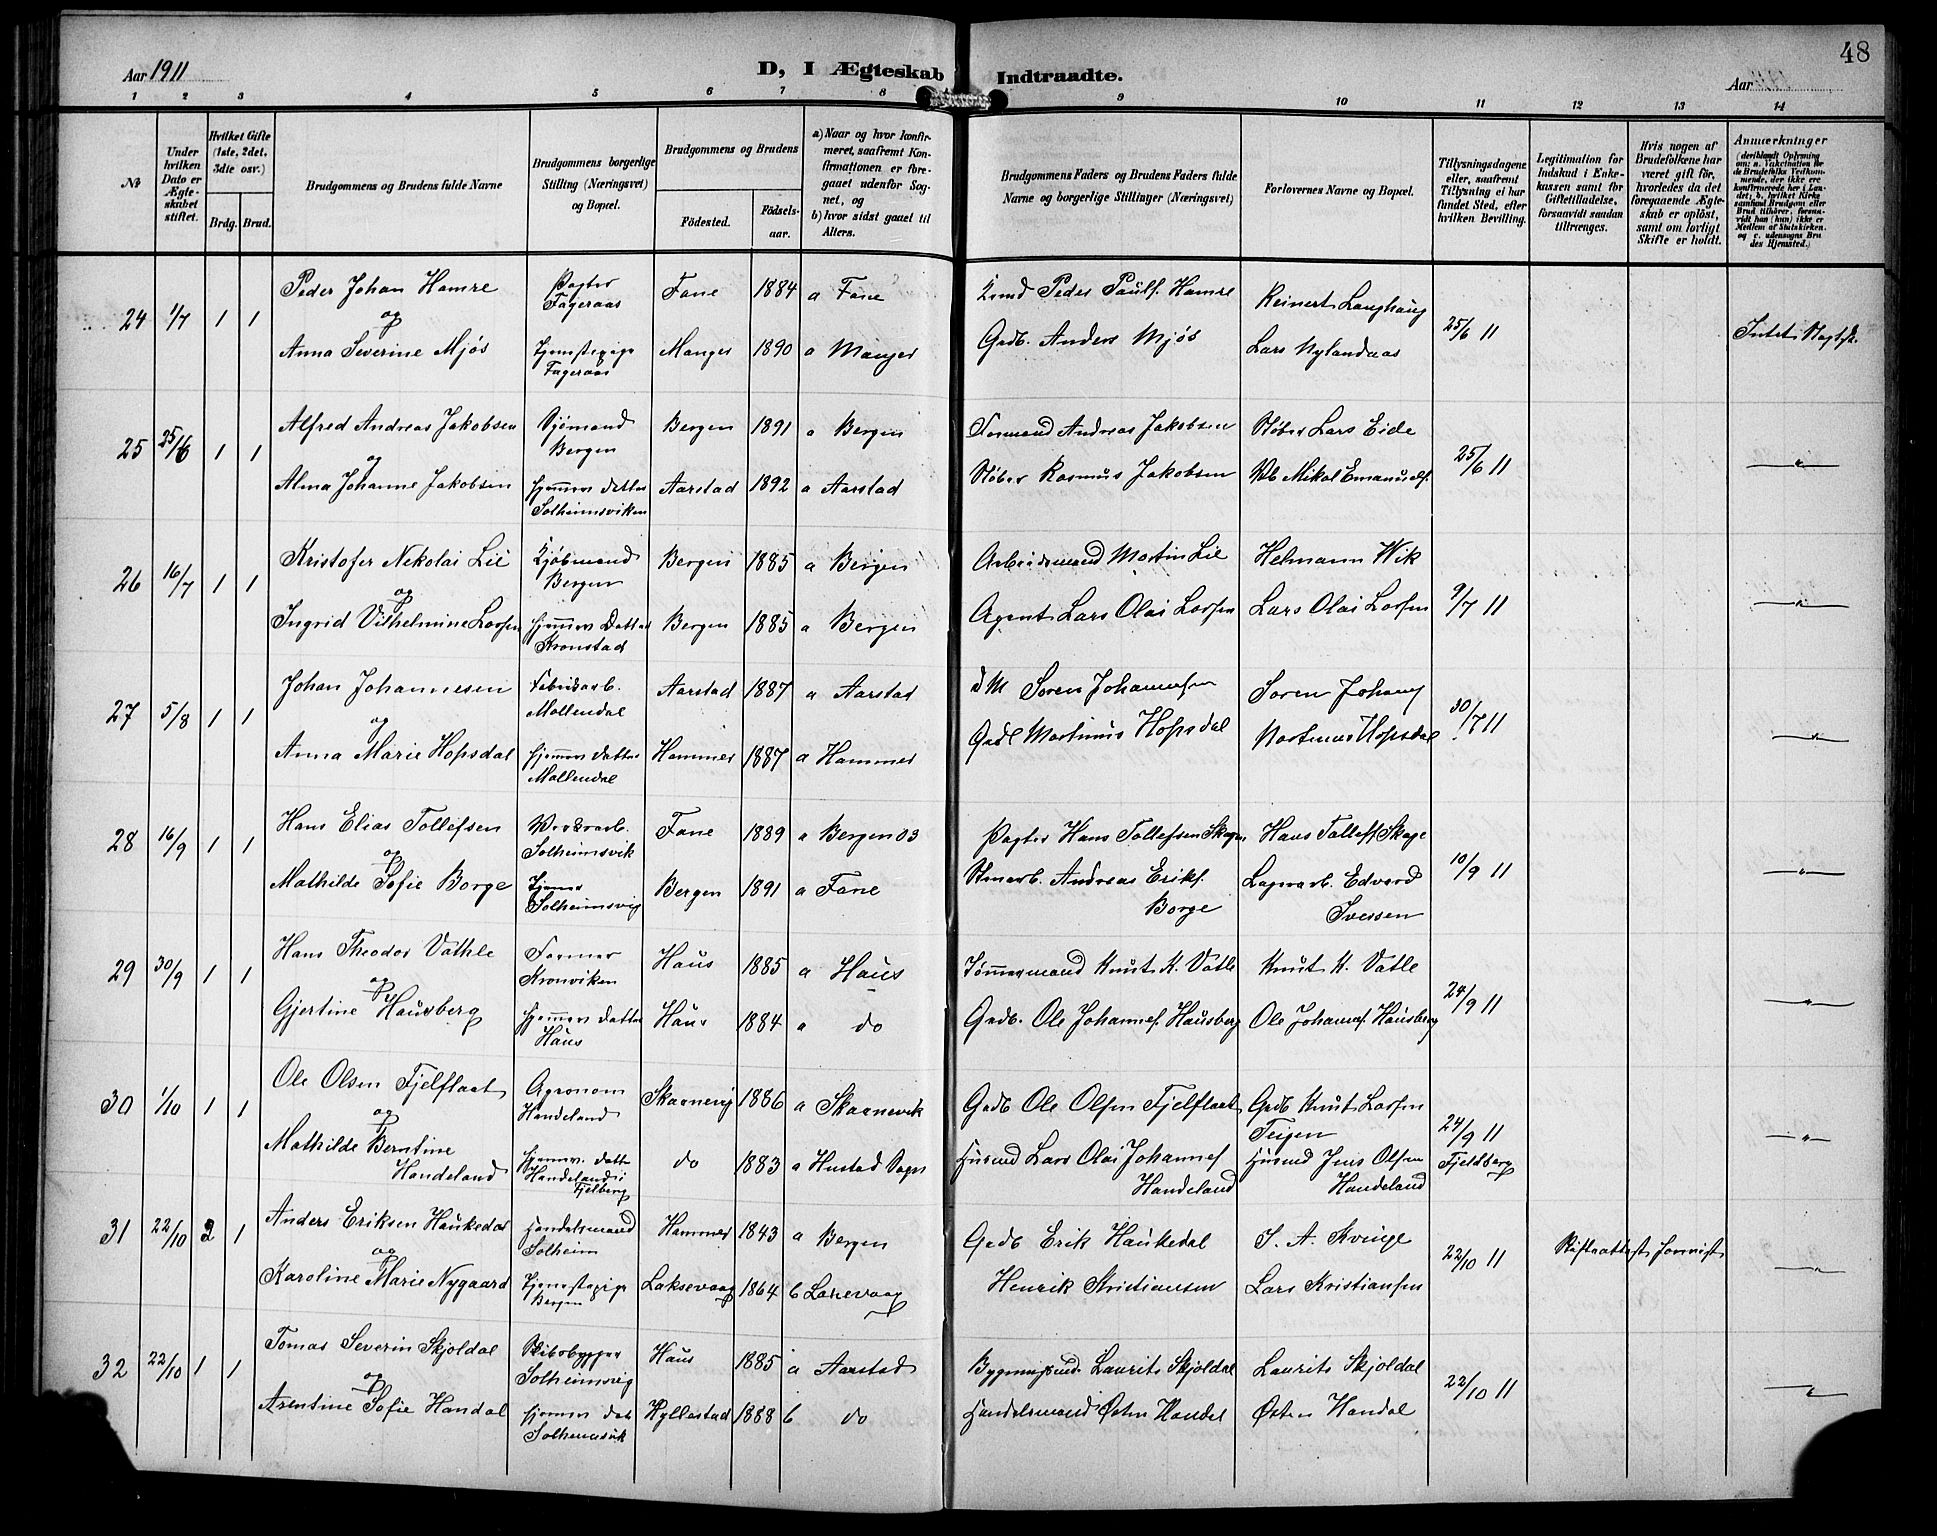 48
Aar 1911
D, I Ægteskab Indtraadte.
Aar
1 2 3 4 5 6 7 8 9 10 11 12 13 14
№
Under hvilken Dato er Ægteskabet stiftet.
Hvilket Gifte (1ste, 2det, 3die osv.)
Brdg. Brud.
Brudgommens og Brudens fulde Navne
Brudgommens borgerlige Stilling (Næringsvei) og Bopæl.
Brudgommens og Brudens
Fødested.
Fødselsaar.
a) Naar og hvor konfirmeret, saafremt Konfirmationen er foregaaet udenfor Sognet, og
b) hvor sidst gaaet til Alters.
Brudgommens Faders og Brudens Faders fulde Navne og borgerlige Stillinger (Næringsvei)
Forlovernes Navne og Bopæl.
Tillysningsdagene eller, saafremt Tillysning ei har fundet Sted, efter hvilken Bevilling.
Legitimation for Indskud i Enkekassen samt for Giftetilladelse, forsaavidt saadan tiltrænges.
Hvis nogen af Brudefolkene har været gift før, hvorledes da det foregaaende Ægteskab er opløst, samt om lovligt Skifte er holdt.
Anmærkninger
24 1/7 1 1 Peder Johan Hamre Pagter Fageraas Fane 1884 a Fane Peder Paulf. Hamre Reinert Langhaug 25/6 11
og
Anna Severine Mjøs Tjenestepige Fageraas Manger 1890 a Manger Grdb. Anders Mjøs Lars Nylandaas
25 25/6 1 1 Alfred Andreas Jakobsen Sjømand Bergen Bergen 1891 a Bergen Formand Andreas Jakobsen Støber Lars Eide 25/6 11 "
og
Alma Johanne Jakobsen Hjemmev. datter Solheimsviken Aarstad 1892 a Aarstad Støber Rasmus Jakobsen Mikal Emanuelf.
26 16/7 1 1 Kristofer Nekolai Lie Kjøbmand Bergen Bergen 1885 a Bergen Arbeidsmand Martin Lie Helmann Wik 9/7 11 "
og
Ingrid Vilhelmine Larsen Hjemmev Datter Kronstad Bergen 1885 a Bergen Agent Lars Olai Larsen Lars Olai Larsen
27 5/8 1 1 Johan Johannesen Fabrikarb. Møllendal Aarstad 1887 a Aarstad Søren Johannesen Søren Johan 30/7 11 "
og
Anna Marie Hopsdal Hjemmev datter Møllendal Hammer 1887 a Hammer Grdb Martinus Hopsdal Martinus Hopsdal
28 16/9 1 1 Hans Elias Tollefsen Værksarb. Solheimsvik Fane 1889 a Bergen 03 Pagter Hans Tollefsen Skage Hans Tollefs Skage 10/9 11 "
og
Mathilde Sofie Borge Hjemme Solheimsvig Bergen 1891 a Fane Andreas Erikf. Borge Lagerarb. Edvard
29 30/9 1 1 Hans Theodor Vathle Farmer Kronviken Haus 1885 a Haus Tømmermand Knut K. Vatle Knut K. Vatle 24/9 11 "
og
Gjertine Hausberg Hjemmev datter Haus Haus 1884 a do Grdb. Ole Johannef. Hausberg Ole Johannef. Hausberg
30 1/10 1 1 Ole Olsen Fjelflaat Agronom Handeland Skaanevig 1886 a Skaanevik Grdb Ole Olsen Fjelflaat Grdb Knut Larsen Teigen 24/9 11 Fjeldberg "
og
Mathilde Berntine Handeland Hjemmev. datter Handeland i Fjelberg do 1883 a Husmd Lars Olai Johannef Handeland Husmd Jens Olsen Handeland
31 22/10 2 1 Anders Eriksen Haukedal Handelsmand Solheim Hammer 1843 a Bergen Grdb Erik Haukedal S. A. Kvinge 22/10 11 Skifteattest "
og
Karoline Marie Nygaard Tjenestepige Bergen Laksevaag 1864 b Laxevaag Henrik Kristiansen Lars Kristiansen
32 22/10 1 1 Tomas Severin Skjoldal Skibsbygger Solheimsvig Haus 1885 a Aarstad Laurits Skjoldal Laurits Skjoldal 22/10 11 "
og
Arentine Sofie Handal Hjemmev dat Solheimsvik Hyllestad 1888 b do Handelsmand Østen Handal Østen Handal